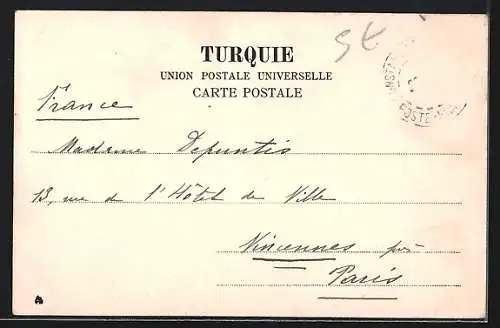 TURQUIE
UNION POSTALE UNIVERSELLE
CARTE POSTALE
France
Madame Depuntis
13, rue de l'Hôtel de Ville
Vincennes près
Paris